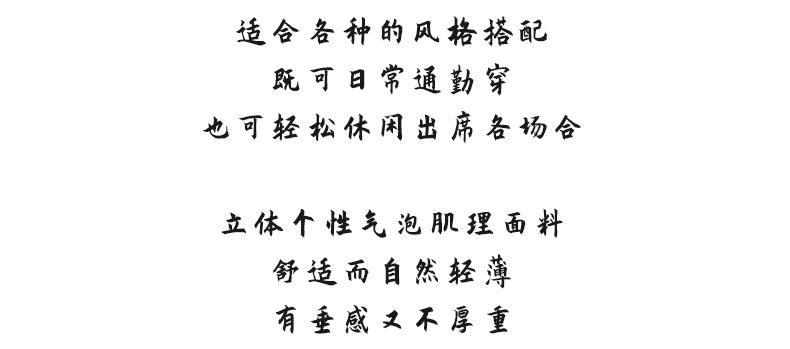 适合各种的风格搭配
既可日常通勤穿
也可轻松休闲出席各场合
立体个性气泡肌理面料
舒适而自然轻薄
有垂感又不厚重